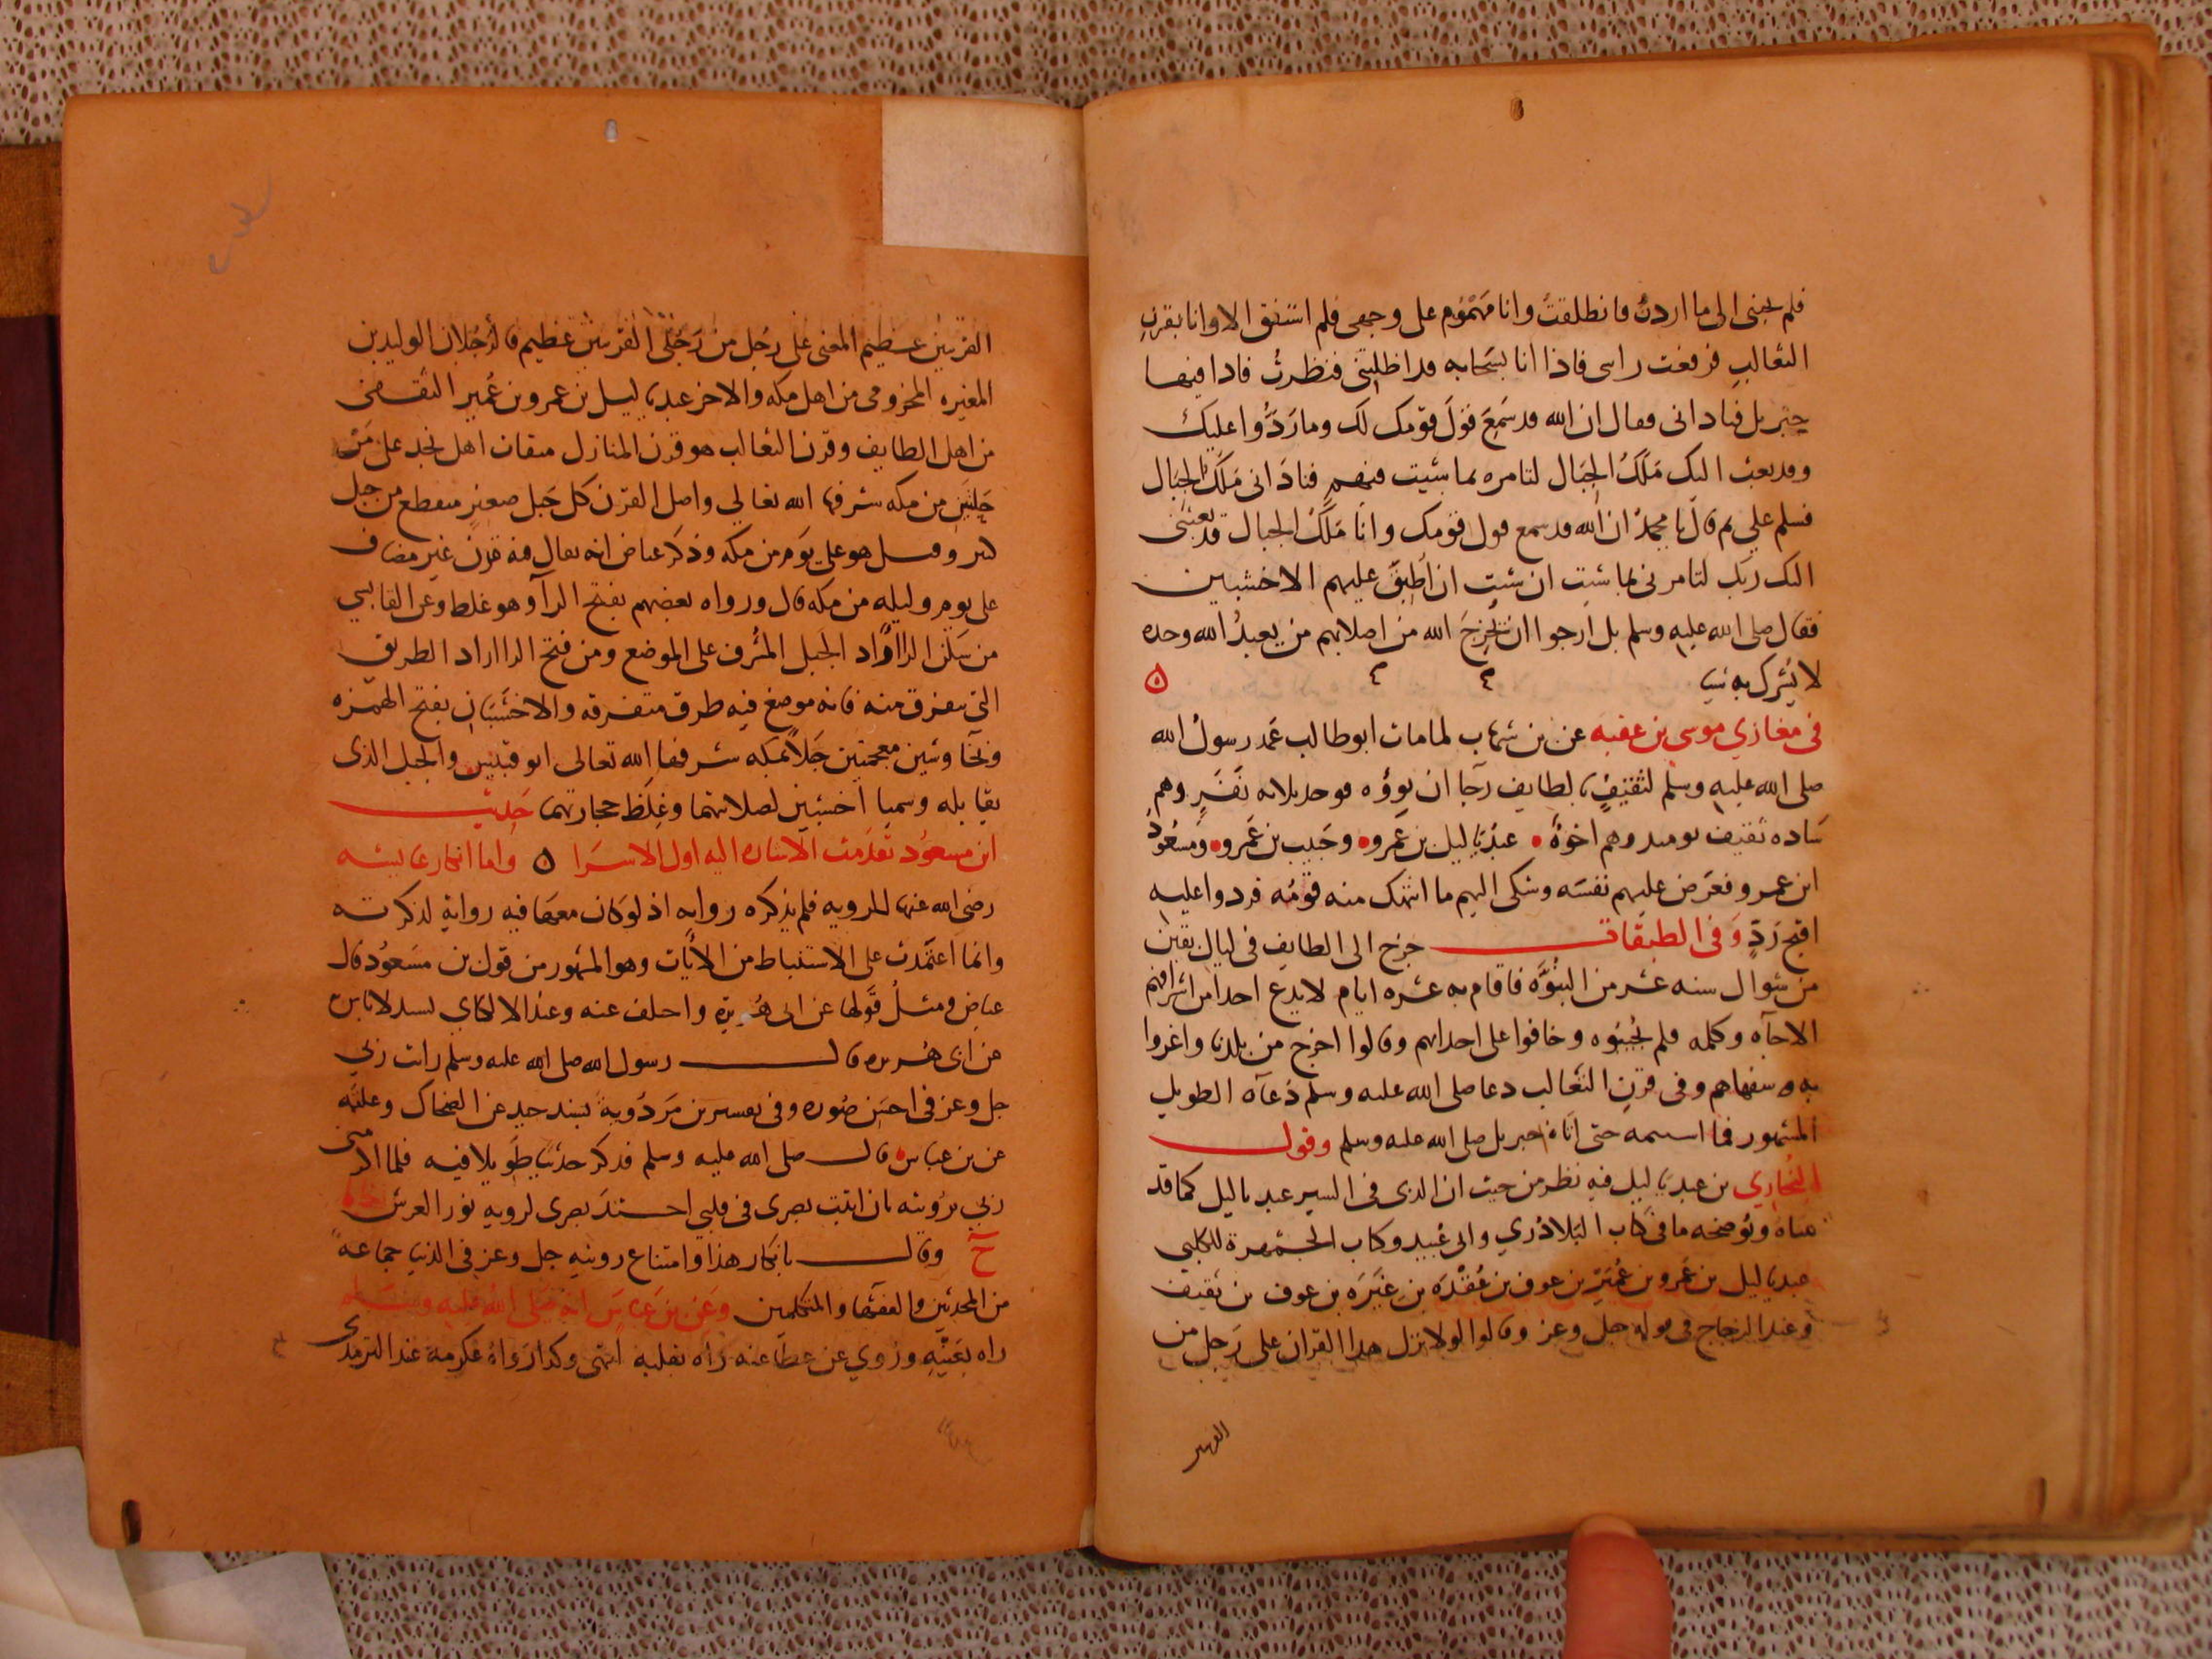 فلم يجبني الى ما اردت فانطلقت وانا مهموم على وجهي فلم استفق الا وانا بقرن
الثعالب فرفعت راسي فاذا انا بسحابه قد اظلتني فنظرت فاذا فيها
جبريل فناداني وقال ان الله قد سمع قول قومك لك وما ردوا عليك
وقد بعث اليك ملك الجبال لتامره بما شيت فيهم فناداني ملك الجبال
فسلم علي ثم قال يا محمد ان الله قد سمع قول قومك وانا ملك الجبال قد بعثني
اليك ربك لتامرني بما شيت ان شيت ان اطبق عليهم الاخشبين
فقال صلى الله عليه وسلم بل ارجوا ان يخرج الله من اصلابهم من يعبد الله وحده
لا يشرك به شيا
في مغازي موسى بن عقبه عن بن شهاب لما مات ابو طالب عمد رسول الله
صلى الله عليه وسلم لثقيف بالطايف رجا ان يووه فوجد ثلاثه نفر وهم
ساده ثقيف يوميد وهم اخوة عبد ياليل بن عمرو وحبيب بن عمرو ومسعود
ابن عمرو فعرض عليهم نفسه وشكى اليهم ما انتهك منه قومه فردوا عليه
اقبح رد وفي الطبقات خرج الى الطايف في ليال بقين
من شوال سنه عشر من النبوة فاقام به عشره ايام لا يدع احدا من اشرافهم
الا جاه وكلمه فلم يجيبوه وخافوا على احداثهم وقالوا اخرج من بلدنا واغروا
به سفهاهم وفي قرن الثعالب دعا صلى الله عليه وسلم دعاه الطويل
المشهور فما استتمه حتى اتاه جبريل صلى الله عليه وسلم وقول
البخاري بن عبد ياليل فيه نظر من حيث ان الذي في السير عبد ياليل كما قد
مناه ويوضحه ما في كتاب البلاذري وابي عبيد وكتاب الجمهرة للكلبي
عبد ياليل بن عمرو بن عمير بن عوف بن عقدة بن غيرة بن عوف بن ثقيف
وعند الزجاج في قوله جل وعز وقالوا لولا نزل هذا القران على رجل من
القريتين
القريتين عظيم المعنى على رجل من رجلي القريتين عظيم فالرجلان الوليد بن
المغيره المخزومي من اهل مكه والاخر عبد ياليل بن عمرو بن عمير الثقفي
من اهل الطايف وقرن الثعالب هو قرن المنازل ميقات اهل نجد على مر
حلتين من مكه شرفها الله تعالى واصل القرن كل جبل صغير منقطع من جبل
كبير وقيل هو على يوم من مكه وذكر عياض انه يقال فيه قرن غير مضاف
على يوم وليله من مكه قال ورواه بعضهم بفتح الرآ وهو غلط وعن القابسي
من سكن الرا اراد الجبل المشرف على الموضع ومن فتح الرا اراد الطريق
التي تتفرق منه فانه موضع فيه طرق متفرقه والاخشبان بفتح الهمزه
وبخا وشين معجمتين جبلا مكه شرفها الله تعالى ابو قبيس والجبل الذي
يقابله وسميا اخشبين لصلابتهما وغلظ حجارتهما حديث
ابن مسعود تقدمت الاشاره اليه اول الاسرا ۵ واما انكار عايشه
رضي الله عنها للرويه فلم يذكره روايه اذ لو كان معها فيه رواية لذكرته
وانما اعتمدت على الاستنباط من الايات وهو المشهور من قول بن مسعود قال
عياض ومثل قولها عن ابي هريرة واختلف عنه وعند الالكاي بسند لا باس
عن ابي هريره قال رسول الله صلى الله عليه وسلم رايت ربي
جل وعز في احسن صوره وفي تفسير بن مردوية بسند جيد عن الضحاك وعكرمه
عن بن عباس قال صلى الله عليه وسلم فذكر حديثا طويلا فيه فلما اكرمني
ربي برويته بان اثبت بصري في قلبي احتد بصري لرويه نور العرش
وقال بانكار هذا وامتناع رويته جل وعز في الدنيا جماعة
من المحدثين والفقها والمتكلمين وعن بن عباس انه صلى الله عليه وسلم
راه بعينه وروي عن عطا عنه راه بقلبه انتهى وكذا رواه عكرمة عند الترمذي